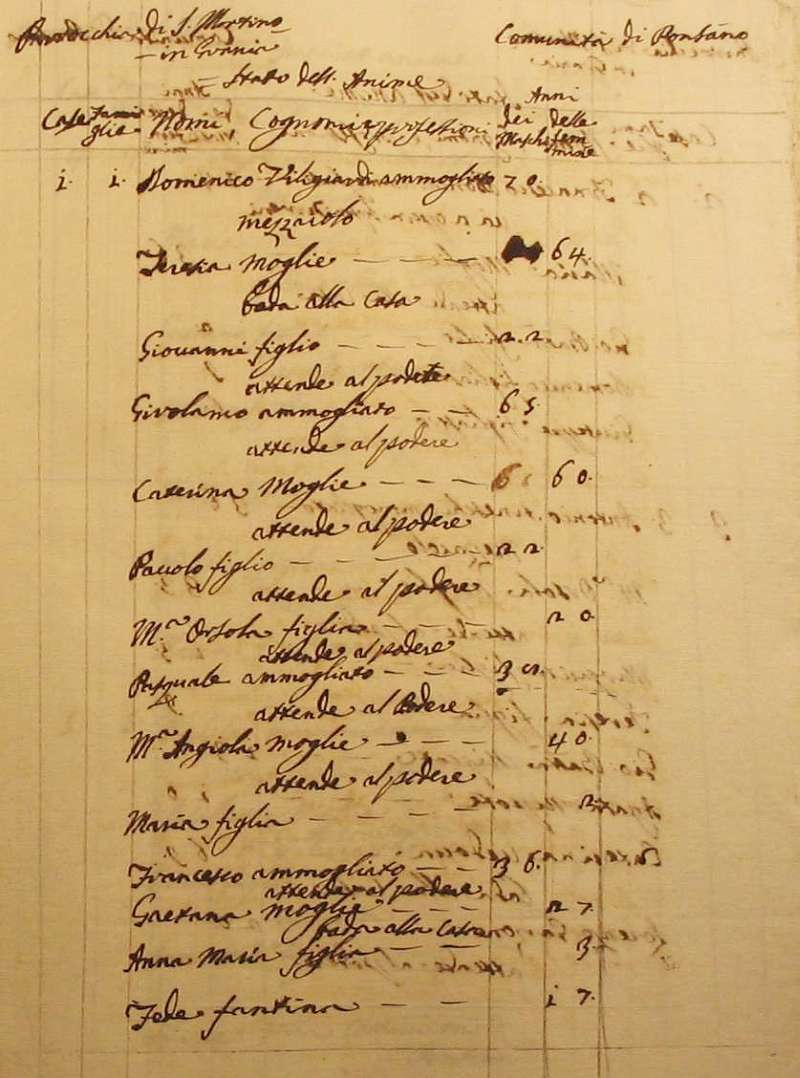 Parrocchia di S. Martino Comunità di Pontano
in
Stato dell' Anime
Anni
Case Fami dei delle
glie Nomi, Cognomi e profesioni Maschi Fem
mine
1. 1. Domenico Viligiardi ammogliato 70.
mezzaiolo
Teresa Moglie — — — 64.
bada alla Casa
Giovanni figlio — — — 22.
attende al podere
Girolamo ammogliato — — 65.
attende al podere
Caterina Moglie — — — 60.
attende al podere
Pauolo figlio — — — 22.
attende al podere
M.a Orsola figlia — — — 20.
attende al podere
Pasquale ammogliato — — 3
attende al Podere
M.a Angiola moglie — — 40.
attende al podere
Maria figlia — — — — 2.
Francesco ammogliato — — 36.
attende al podere
Gaetana moglie — — — 27.
bada alla Casa
Anna Maria figlia — — 3.
Fede fantina — — 17.